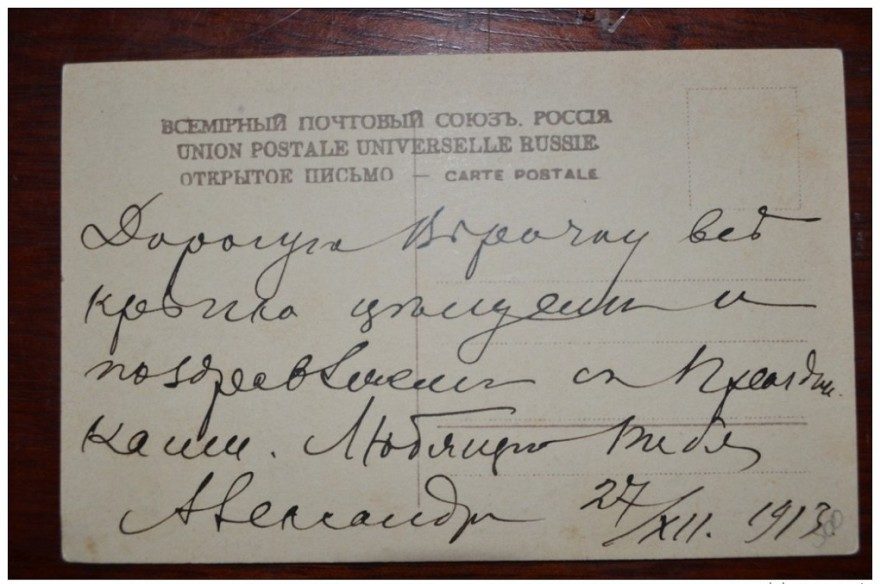 ВСЕМІРНЫЙ ПОЧТОВЫЙ СОЮЗЪ. РОССІЯ
UNION POSTALE UNIVERSELLE RUSSIE.
ОТКРЫТОЕ ПИСЬМО — CARTE POSTALE
Дорогую Вѣрочку всѣ
крѣпко цѣлуемъ и
поздравляемъ съ праздни
ками. Любящій тебя
Александръ 27/XII. 1913